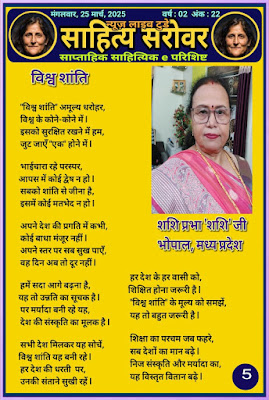 मंगलवार, 25 मार्च, 2025
वर्ष : 02 अंक : 22
न्यूज़ लाइव टुडे
साहित्य सरोवर
साप्ताहिक साहित्यिक e परिशिष्ट
विश्व शांति
"विश्व शांति" अमूल्य धरोहर,
विश्व के कोने-कोने में।
इसको सुरक्षित रखने में हम,
जुट जाएँ "एक" होने में।
भाईचारा रहे परस्पर,
आपस में कोई द्वेष न हो।
सबको शांति से जीना है,
इसमें कोई मतभेद न हो।
अपने देश की प्रगति में कभी,
कोई बाधा मंजूर नहीं।
अपने स्तर पर सब सुख पाएँ,
वह दिन अब तो दूर नहीं।
हमें सदा आगे बढ़ना है,
यह तो उन्नति का सूचक है।
पर मर्यादा बनी रहे यह,
देश की संस्कृति का मूलक है।
सभी देश मिलकर यह सोचें,
विश्व शांति यह बनी रहे।
हर देश की धरती पर,
उनकी संतान सुखी रहें।
शशि प्रभा 'शशि' जी
भोपाल, मध्य प्रदेश
हर देश के हर वासी को,
शिक्षित होना जरूरी है।
"विश्व शांति" के मूल्य को समझें,
यह तो बहुत जरूरी है।
शिक्षा का परचम जब फहरे,
सब देशों का मान बढ़े।
निज संस्कृति और मर्यादा का,
यह विस्तृत वितान बढ़े।
5